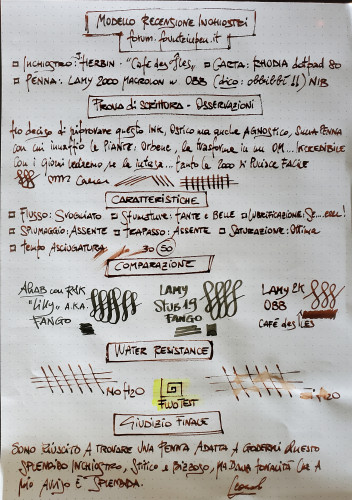 Modello Recensione Inchiostri
forum.fountainpen.it
Inchiostro: J. Herbin - "Café des Îles" Carta: Rhodia dotpad 80
Penna: Lamy 2000 Macrolon w OBB (dico: obbibbì !!) NIB
Prova di scrittura - Osservazioni
Ho deciso di riprovare questo ink, ostico ma anche agnostico, sulla penna
con cui innaffio le piante. Orbene, la trasforma in un OM... Incredibile
con i giorni vedremo, se la intasa... tanto la 2000 si pulisce facile
Caratteristiche
Flusso: Svogliato Sfumature: tante e belle Lubrificazione: Se... eeee!
Spiumaggio: Assente Trapasso: Assente Saturazione: Ottima
Tempo Asciugatura 30 50
Comparazione
Ahab con R&K Lamy Lamy 2K
"Lilly" A.K.A. Stub 1.9 OBB
Fango Fango Café des Îles
Water Resistance
No H2O Fluo Test Si H2O
Giudizio Finale
Sono riuscito a trovare una penna adatta a godermi questo
splendido inchiostro, stitico e bizzoso, ma dalla tonalità che a
mio avviso è splendida.